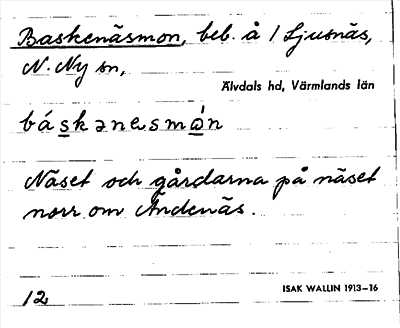 Baskenäsmon, beb. å 1 Ljusnäs,
N. Ny sn,
Älvdals hd, Värmlands län
báskənesmȧ̀n
Näset och gårdarna på näset
norr om Ändenäs.
12
ISAK WALLIN 1913–16